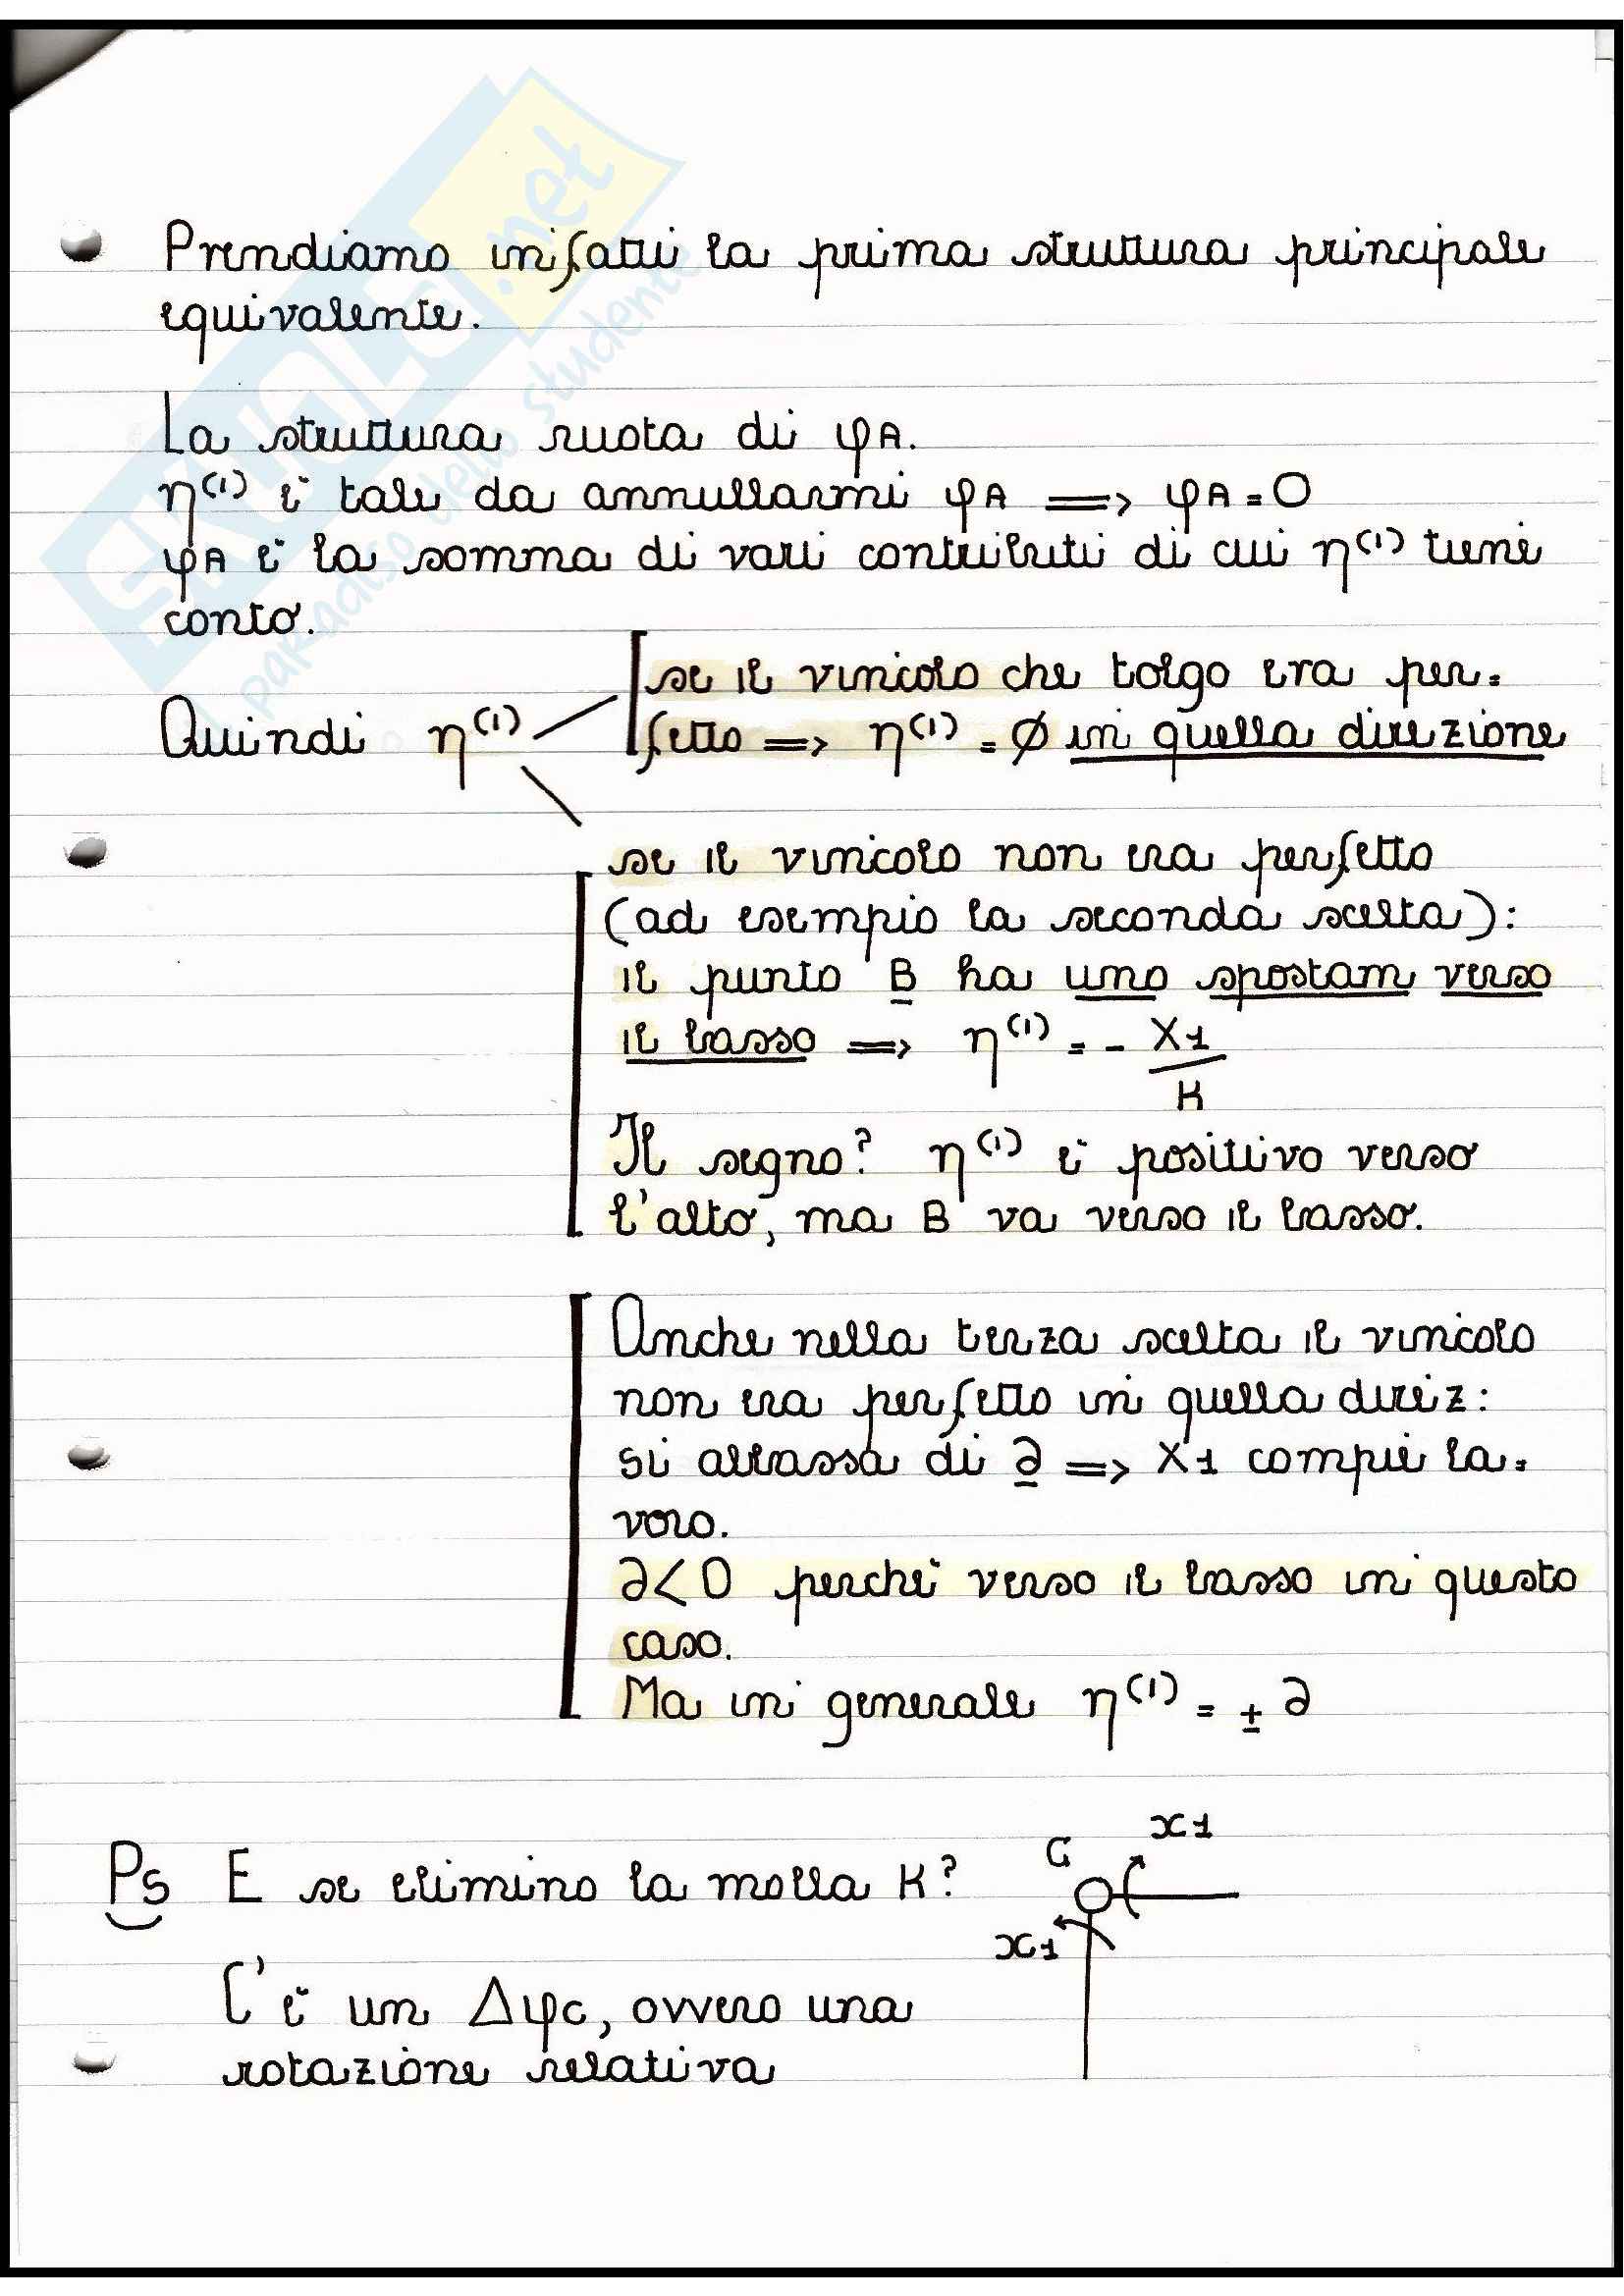 Prendiamo infatti la prima struttura principale
equivalente.
La struttura ruota di φA.
η⁽¹⁾ è tale da annullarmi φA => φA = 0
φA è la somma di vari contributi di cui η⁽¹⁾ tiene
conto.
Quindi η⁽¹⁾
se il vincolo che tolgo era per=
fetto => η⁽¹⁾ = Ø in quella direzione
se il vincolo non era perfetto
(ad esempio la seconda scelta):
il punto B ha uno spostam verso
il basso => η⁽¹⁾ = - X1/K
Il segno? η⁽¹⁾ è positivo verso
l'alto, ma B va verso il basso.
Anche nella terza scelta il vincolo
non era perfetto in quella direz:
si abbassa di ∂ => X1 compie la=
voro.
∂<0 perché verso il basso in questo
caso.
Ma in generale η⁽¹⁾ = ± ∂
Ps E se elimino la molla K?
C
x1
x1
C'è un ΔφC, ovvero una
rotazione relativa
SKUOLA.net
paradiso dello studente